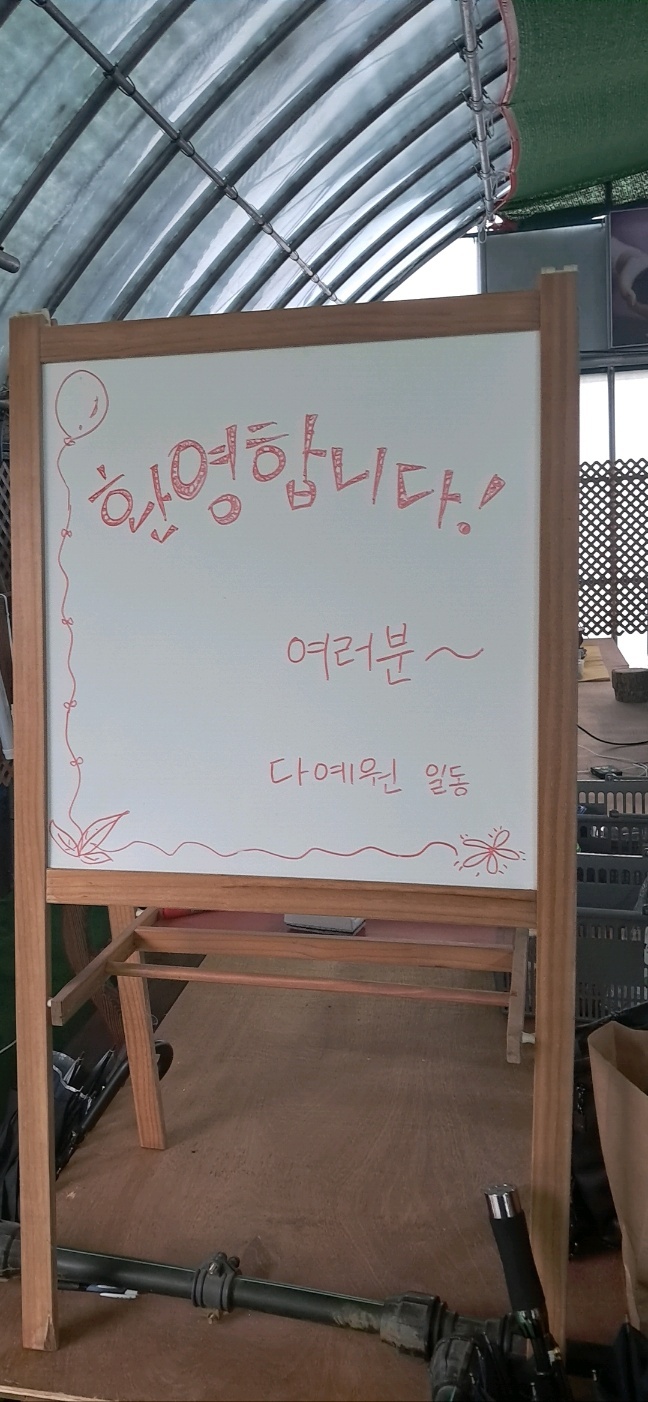 환영합니다!
여러분~
다예원 일동